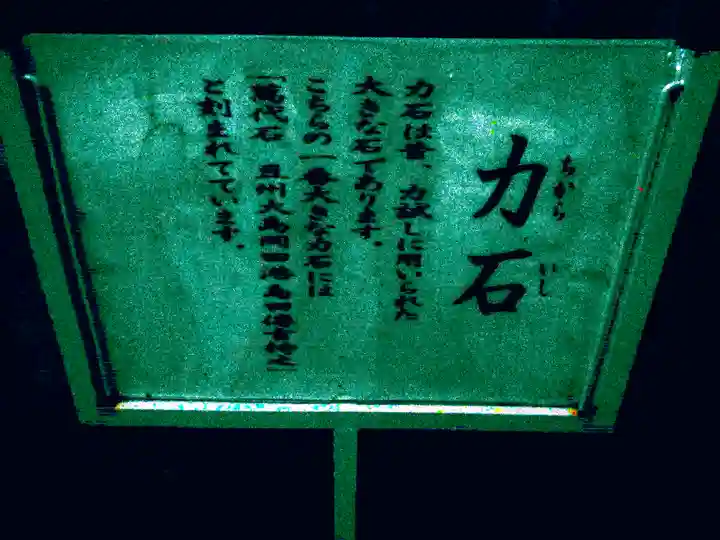 力石
ちから いし
力石は昔、力試しに用いられた
大きな石であります。
こちらの一番大きな石には
と刻まれています。